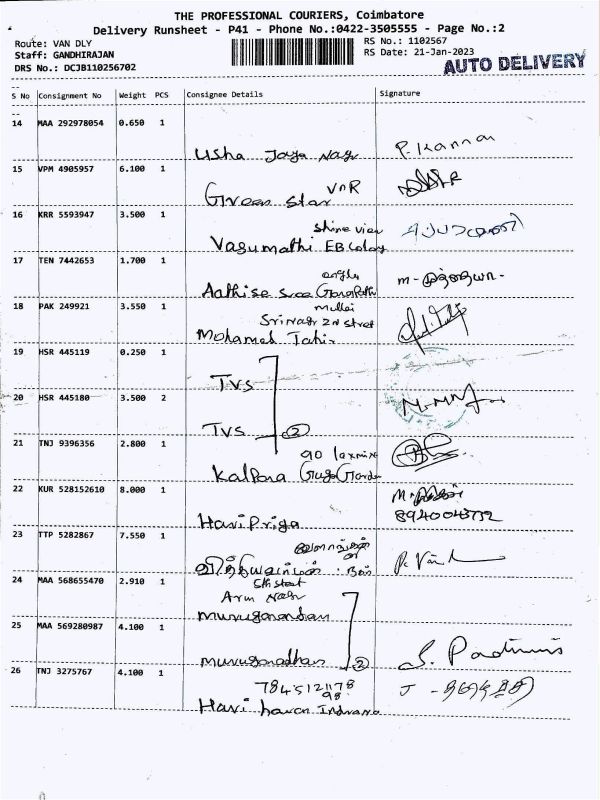 THE PROFESSIONAL COURIERS, Coimbatore
Delivery Runsheet - P41 - Phone No.:0422-3505555 - Page No.:2
Route: VAN DLY
RS No.: 1102567
Staff: GANDHIRAJAN
RS Date: 21-Jan-2023
DRS No.: DCJB110256702
AUTO DELIVERY
S No Consignment No Weight PCS Consignee Details Signature
14 MAA 292978054 0.650 1
Usha Jaya Nagr P. Kannan
15 VPM 4905957 6.100 1
VNR
Green Star
16 KRR 5593947 3.500 1
Shine view
Vasumathi EB Colony
17 TEN 7442653 1.700 1
Aathise sree Ganapathi
18 PAK 249921 3.550 1
mullai
Srinagr 2N street
Mohamed Tahir
19 HSR 445119 0.250 1
TVS
20 HSR 445180 3.500 2
TVS 2
21 TNJ 9396356 2.800 1
90
Kalpana Garden
22 KUR 528152610 8.000 1
8940043772
Hari Priya
23 TTP 5282867 7.550 1
24 MAA 568655470 2.910 1
5th street
Arun Nagr
muruganandan
25 MAA 569280987 4.100 1
muruganadhan 2
26 TNJ 3275767 4.100 1
7845121178
98
Hari